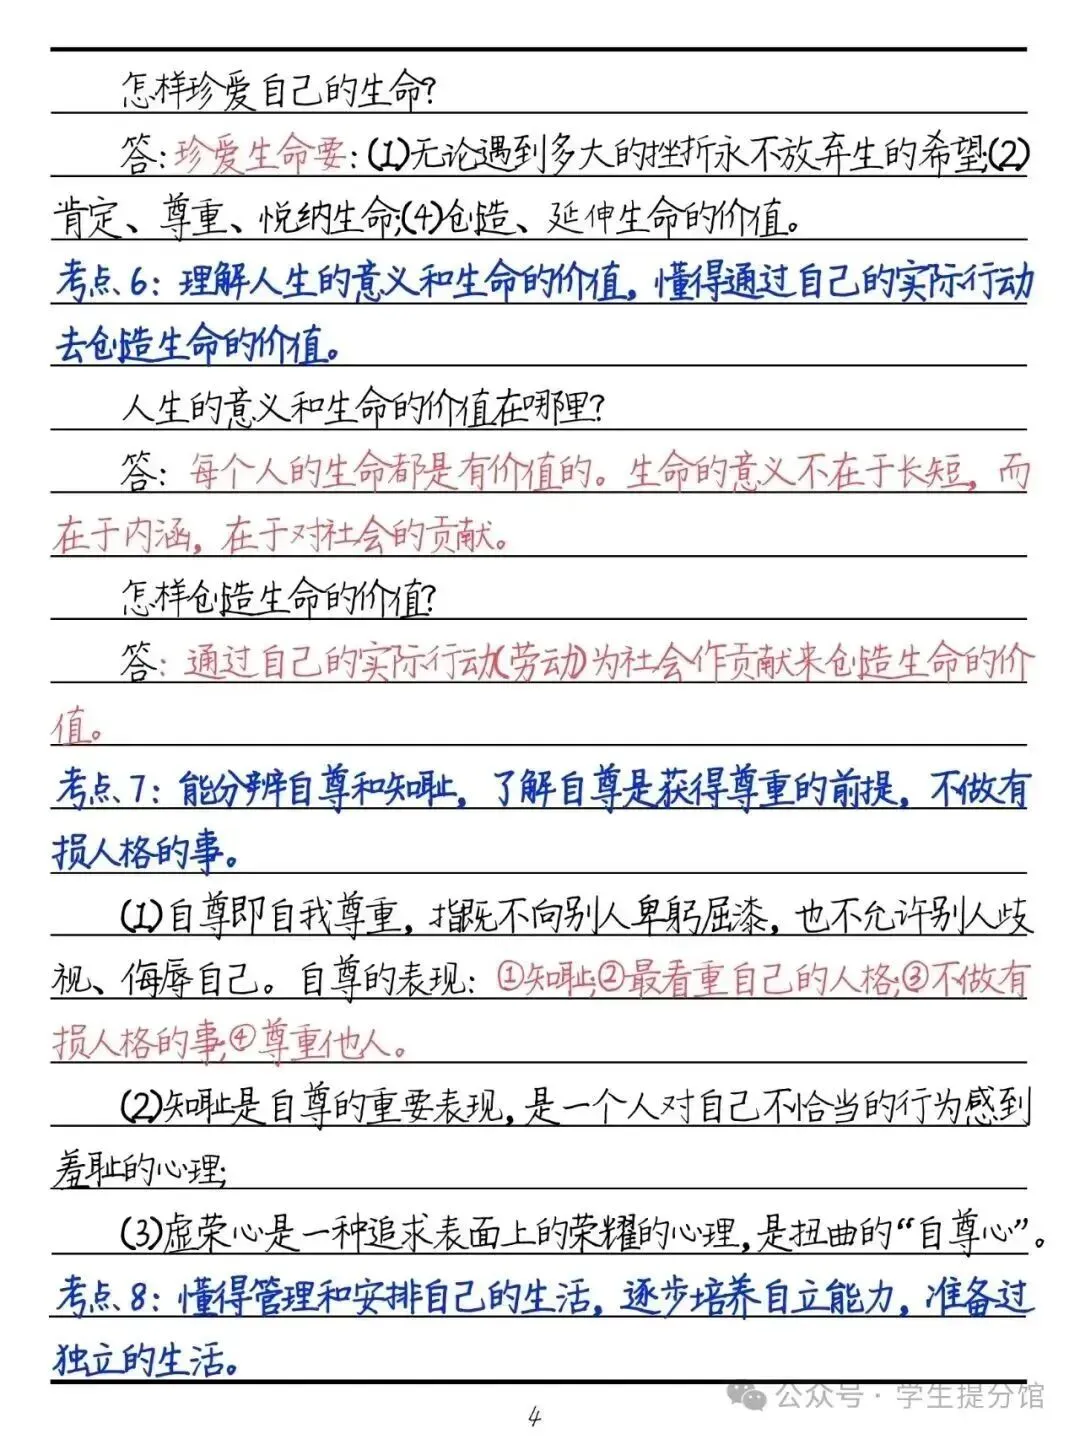 怎样珍爱自己的生命?
答:珍爱生命要:(1)无论遇到多大的挫折永不放弃生的希望;(2)
肯定、尊重、悦纳生命;(4)创造、延伸生命的价值。
考点6:理解人生的意义和生命的价值,懂得通过自己的实际行动
去创造生命的价值。
人生的意义和生命的价值在哪里?
答:每个人的生命都是有价值的。生命的意义不在于长短,而
在于内涵,在于对社会的贡献。
怎样创造生命的价值?
答:通过自己的实际行动(劳动)为社会作贡献来创造生命的价
值。
考点7:能分辨自尊和知耻,了解自尊是获得尊重的前提,不做有
损人格的事。
(1)自尊即自我尊重,指既不向别人卑躬屈漆,也不允许别人歧
视、侮辱自己。自尊的表现:①知耻;②最看重自己的人格;③不做有
损人格的事;④尊重他人。
(2)知耻是自尊的重要表现,是一个人对自己不恰当的行为感到
羞耻的心理;
(3)虚荣心是一种追求表面上的荣耀的心理,是扭曲的“自尊心”。
考点8:懂得管理和安排自己的生活,逐步培养自立能力,准备过
独立的生活。
公众号·学生提分馆
4